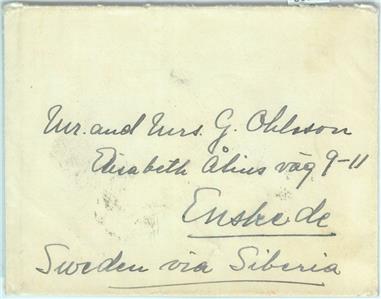 Mr. and Mrs. G. Ohlsson
Elisabeth Ålins väg 9-11
Enskede
Sweden via Siberia